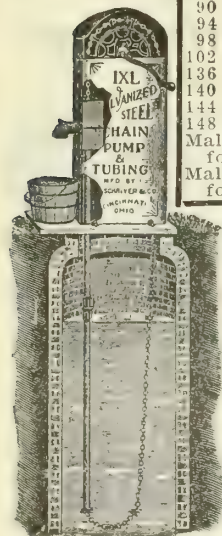 90
94
98
102
136
140
144
148
Mal
fo
Mal
fo
IXL
GALVANIZED
STEEL
CHAIN
PUMP
&
TUBING
MFD BY
SCHRIVER & CO.
CINCINNATI
OHIO